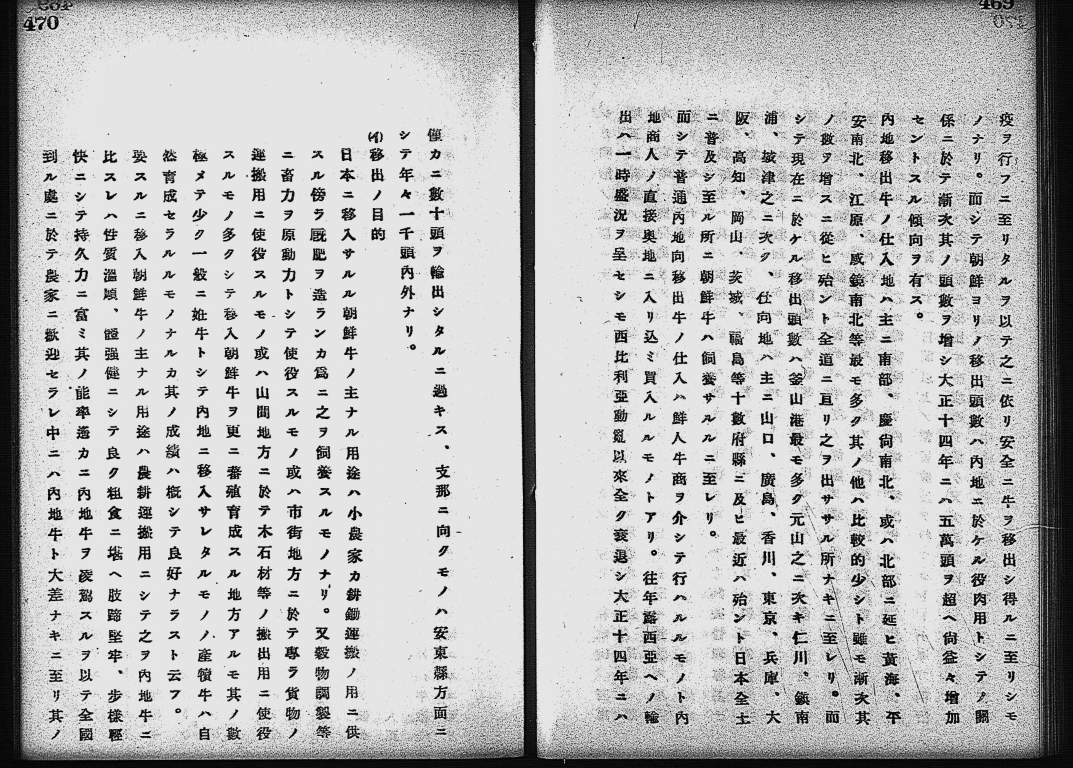 469
疫ヲ行フニ至リタルヲ以テ之ニ依リ安全ニ牛ヲ移出シ得ルニ至リシモ
ノナリ。而シテ朝鮮ヨリノ移出頭數ハ內地ニ於ケル役肉用トシテノ關
係ニ於テ漸次其ノ頭數ヲ增シ大正十四年ニハ五萬頭ヲ超ヘ尙益々增加
セントスル傾向ヲ有ス。
內地移出牛ノ仕入地ハ主ニ南部、慶尙南北、或ハ北部ニ延ヒ黃海、平
安南北、江原、咸鏡南北等最モ多ク其ノ他ハ比較的少シト雖モ漸次其
ノ數ヲ增スニ從ヒ殆ント全道ニ亘リ之ヲ出ササル所ナキニ至レリ。而
シテ現在ニ於ケル移出頭數ハ釜山港最モ多ク元山之ニ次キ仁川、鎭南
浦、城津之ニ次ク、仕向地ハ主ニ山口、廣島、香川、東京、兵庫、大
阪、高知、岡山、茨城、福島等十數府縣ニ及ヒ最近ハ殆ント日本全土
ニ普及シ至ル所ニ朝鮮牛ハ飼養サルルニ至レリ。
而シテ普通內地向移出牛ノ仕入ハ鮮人牛商ヲ介シテ行ハルルモノト內
地商人ノ直接奧地ニ入リ込ミ買入ルルモノトアリ。往年露西亞ヘノ輸
出ハ一時盛況ヲ呈セシモ西比利亞動亂以來全ク衰退シ大正十四年ニハ
470
僅カニ數十頭ヲ輸出シタルニ過キス、支那ニ向クモノハ安東縣方面ニ
シテ年々一千頭內外ナリ。
(イ)移出ノ目的
日本ニ移入サルル朝鮮牛ノ主ナル用途ハ小農家カ耕鋤運搬ノ用ニ供
スル傍ラ厩肥ヲ造ランカ爲ニ之ヲ飼養スルモノナリ。又穀物調製等
ニ畜力ヲ原動力トシテ使役スルモノ或ハ市街地方ニ於テ專ラ貨物ノ
運搬用ニ使役スルモノ或ハ山間地方ニ於テ木石材等ノ搬出用ニ使役
スルモノ多クシテ移入朝鮮牛ヲ更ニ蕃殖育成スル地方アルモ其ノ數
極メテ少ク一般ニ牝牛トシテ內地ニ移入サレタルモノノ產犢牛ハ自
然育成セラルルモノナルカ其ノ成績ハ槪シテ良好ナラスト云フ。
要スルニ移入朝鮮牛ノ主ナル用途ハ農耕運搬用ニシテ之ヲ內地牛ニ
比スレハ性質溫順、體强健ニシテ良ク粗食ニ堪ヘ肢蹄堅牢、步樣輕
快ニシテ持久力ニ富ミ其ノ能率遙カニ內地牛ヲ凌駕スルヲ以テ全國
到ル處ニ於テ農家ニ歡迎セラレ中ニハ內地牛ト大差ナキニ至リ其ノ